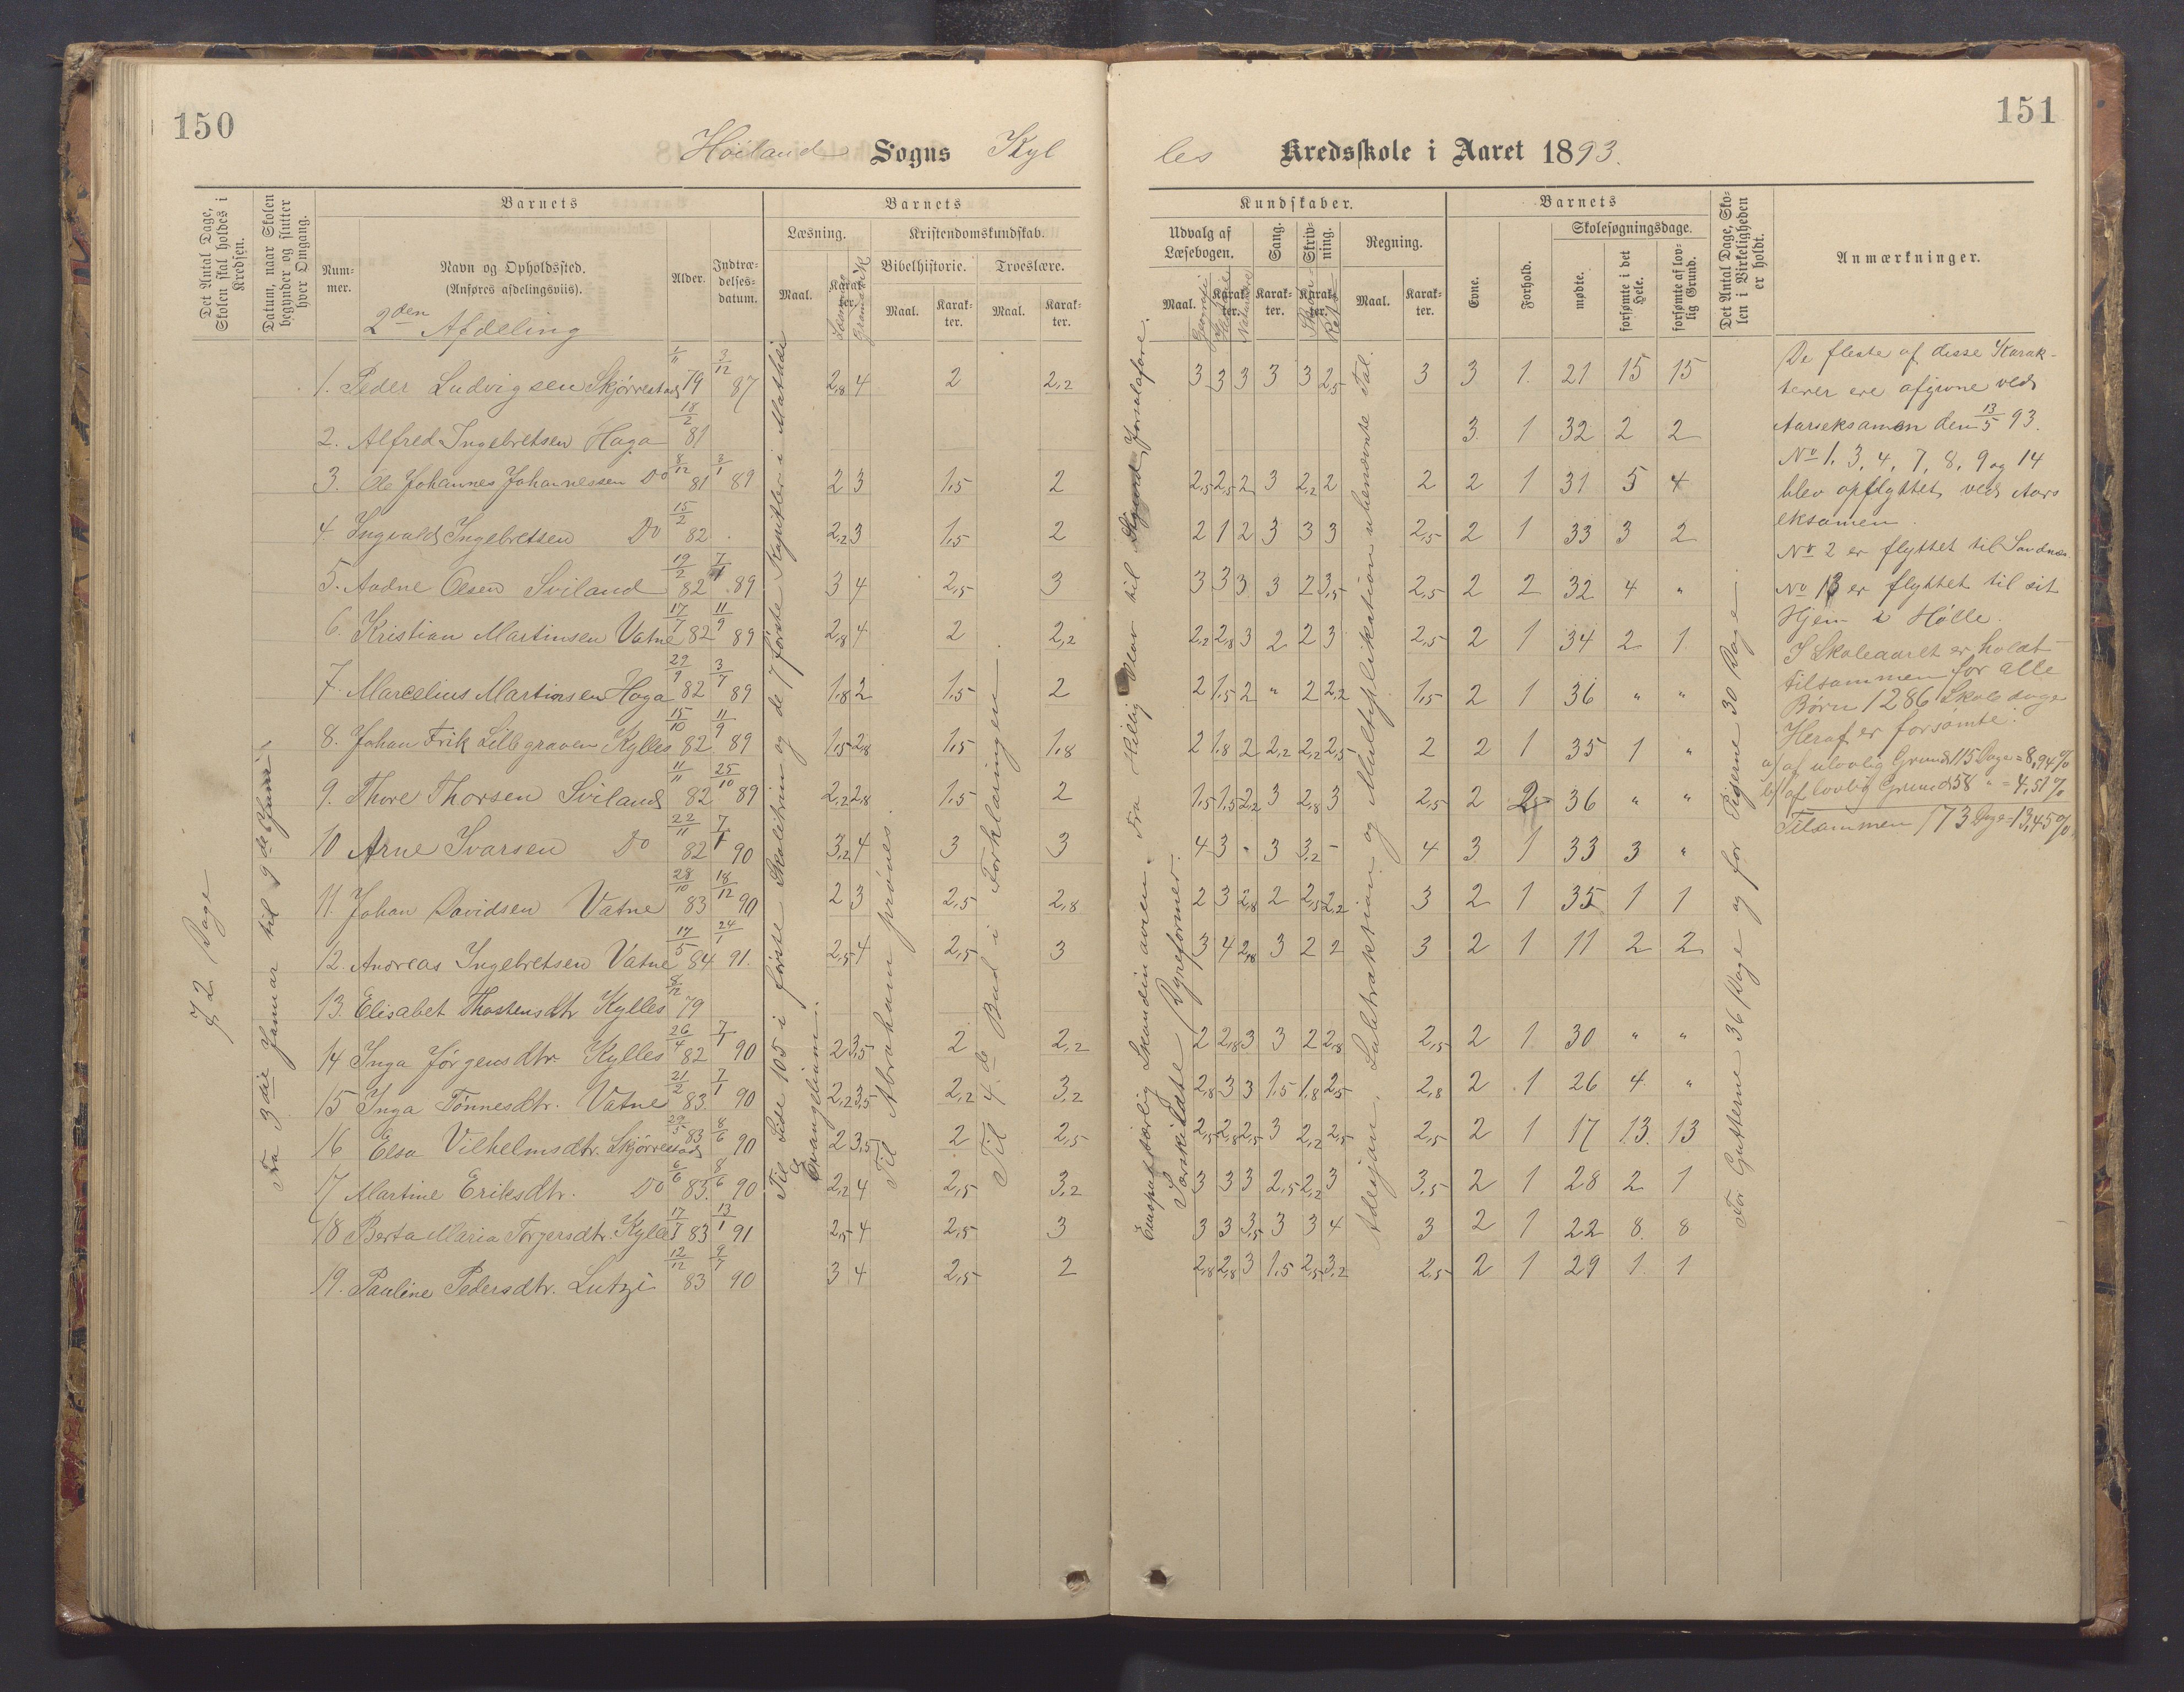 150
Höiland Sogns Kyl
Det Antal Dage, Skolen skal holdes i Kredsen.
Datum, naar Skolen begynder og slutter hver Omgang.
Barnets
Num-mer.
Navn og Opholdssted.
(Anføres afdelingsviis).
2den Afdeling
Alder.
Indtræ-delses-datum.
Barnets
Læsning.
Maal.
Karak-ter.
Kristendomskundskab.
Bibelhistorie.
Maal.
Karak-ter.
Troeslære.
Maal.
Karak-ter.
72 Dage
Fra 3die Januar til 9de Juni
1. Peder Ludvigsen Skjørrestad 1/11 79 3/12 87 2,8 4 2 2,2
2. Alfred Ingebretsen Haga 18/2 81
3. Ole Johannes Johannessen Do 8/12 81 3/1 89 2 3 1,5 2
4. Ingvald Ingebretsen Do 15/2 82 2,2 3 1,5 2
5. Aadne Olsen Sviland 19/2 82 7/1 89 3 4 2,5 3
6. Kristian Martinsen Vatne 17/7 82 11/9 89 2,8 4 2 2,2
7. Marcelius Martinsen Haga 29/9 82 3/7 89 1,8 2 1,5 2
8. Johan Erik Lillegraven Kylles 15/10 82 11/9 89 1,5 2,8 1,5 1,8
9. Thore Thorsen Sviland 11/11 82 25/10 89 2,2 2,8 1,5 2
10 Arne Ivarsen Do 22/11 82 7/1 90 3,2 4 3 3
11. Johan Davidsen Vatne 28/10 83 18/12 90 2 3 2,5 2,8
12. Andreas Ingebretsen Vatne 17/5 84 24/1 91. 2,5 4 2,5 3
13. Elisabet Thostensdtr Kylles 79
14 Inga Jørgensdtr Kylles 26/4 82 7/1 90 2 3,5 2 2,2
15 Inga Tønnesdtr. Vatne 21/2 83. 7/1 90 2,2 3,5 2,2 3,2
16 Elsa Vilhelmsdtr. Skjørrestad 29/5 83 8/6 90 2 3,5 2 2,5
17 Martine Eriksdtr. Do 6/6 83. 8/6 90 2,2 4 2,5 3,2
18 Berta Maria Torgersdtr. Kylles 17/7 83 13/1 91 2,5 4 2,5 3
19. Pauline Pedersdtr. Lutzi 12/12 83 9/7 90 3 4 2,5 2
Til Side 105 i første Skoletrin og de 7 første Kapitler i Mathæi
Evangelium.
Til Abraham prøves.
Til 4de Bud i Forklaringen.
151
les Kredsskole i Aaret 1893.
Kundskaber.
Udvalg af Læsebogen.
Maal.
Karak-ter.
Sang.
Karak-ter.
Skriv-ning.
Karak-ter.
Regning.
Maal.
Karak-ter.
Barnets
Evne.
Forhold.
Skolesøgningsdage.
mødte.
forsømte i det Hele.
forsømte af lov-lig Grund.
Det Antal Dage, Sko-len i Virkeligheden er holdt.
Anmærkninger.
3 3 3 3 3 2,5 3 3 1. 21 15 15
3. 1 32 2 2
2,5 2,5 2 3 2,2 2 2 2 1 31 5 4
2 1 2 3 3 3 2,5 2 1 33 3 2
3 3 3 3 2 3,5 2,5 2 2 32 4 "
2,2 2,8 3 2 2 3 2,5 2 1 34 2 1
2 1,5 2 " 2 2,2 1,5 2 1 36 " "
2 1,8 2 2,2 2,2 2,5 2 2 1 35 1 "
1,5 1,5 2,2 3 2,8 3 2,5 2 2 36 " "
4 3 " 3 3,2 - 4 3 1 33 3 "
2 3 2,8 2 2,5 2,2 3 2 1 35 1 1
3 4 2,8 3 2 2 3 2 1 11 2 2
2 2,8 3 3 2 2,8 2,5 2 1 30 " "
2,8 3 3 1,5 1,8 2,5 2,8 2 1 26 4 "
2,5 2,8 2,5 3 2,2 2,5 2,5 2 1 17 13. 13
3 3 3 2,5 2,2 3 3,5 2 1 28 2 1
3 3 3,5 3 3 4 3 2 1 22 8. 8
2,8 2,8 3 1,5 2,5 3,2 2,5 2 1 29 1 1
Fra Hellig Olav til
Dyreformer.
Adesjon, Subtraktsion og Multiplikation ubenævnte Tal.
For Gutterne 36 Dage og for Pigerne 30 Dage
De fleste af disse Karak-
terer ere afgivne ved
Aarseksamen den 13/5 93.
No 1, 3, 4, 7, 8, 9 og 14
blev opflyttet ved Aars
eksamen.
No 2 er flyttet til Sandnes.
No 13 er flyttet til sit
Hjem i Hölle.
I Skoleaaret er holdt
tilsammen for alle
Børn 1286 Skoledage
Heraf er forsømte:
a/ af ulovlig Grund 115 Dage = 8,94%
b/ af lovlig Grund 58 " = 4,51%
Tilsammen 173 Dage = 13,45%